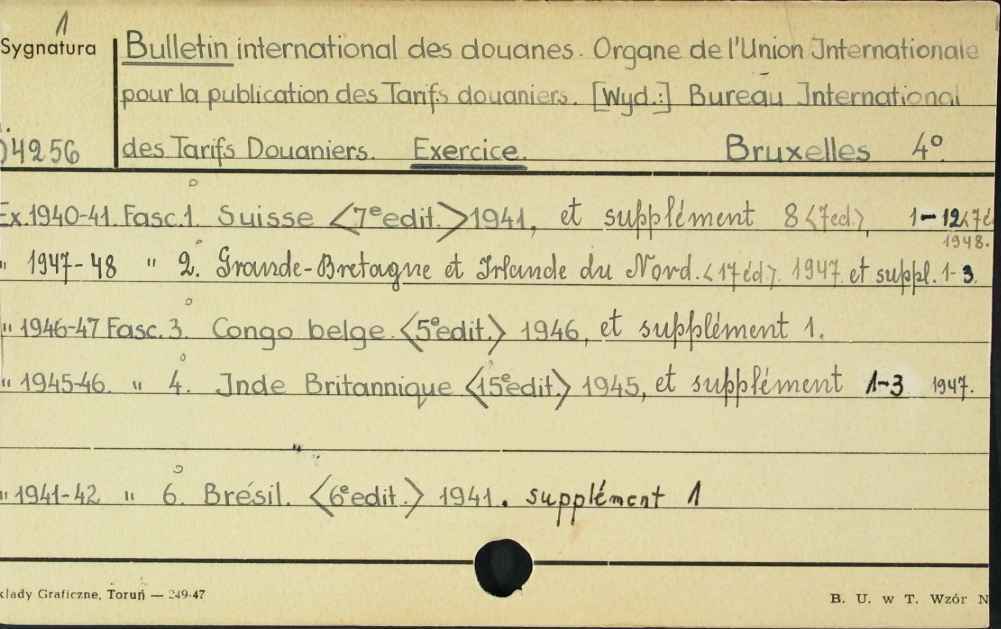 1
Sygnatura
Bulletin international des douanes. Organe de l'Union Internationale
pour la publication des Tarifs douaniers. [Wyd.:] Bureau International
04256
des Tarifs Douaniers. Exercice. Bruxelles 4°
Ex. 1940-41. Fasc. 1. Suisse <7e edit.> 1941, et supplément 8 <7ed.>, 1-12 <7é
1948.
" 1947-48 " 2. Grande-Bretagne et Irlande du Nord. <17 éd>. 1947. et suppl. 1-3.
" 1946-47 Fasc. 3. Congo belge. <5e edit.> 1946, et supplément 1.
" 1945-46. " 4. Inde Britannique <15e edit.> 1945, et supplément 1-3 1947.
"
" 1941-42 " 6. Brésil. <6e edit.> 1941. supplément 1
kłady Graficzne, Toruń — 249-47
B. U. w T. Wzór N